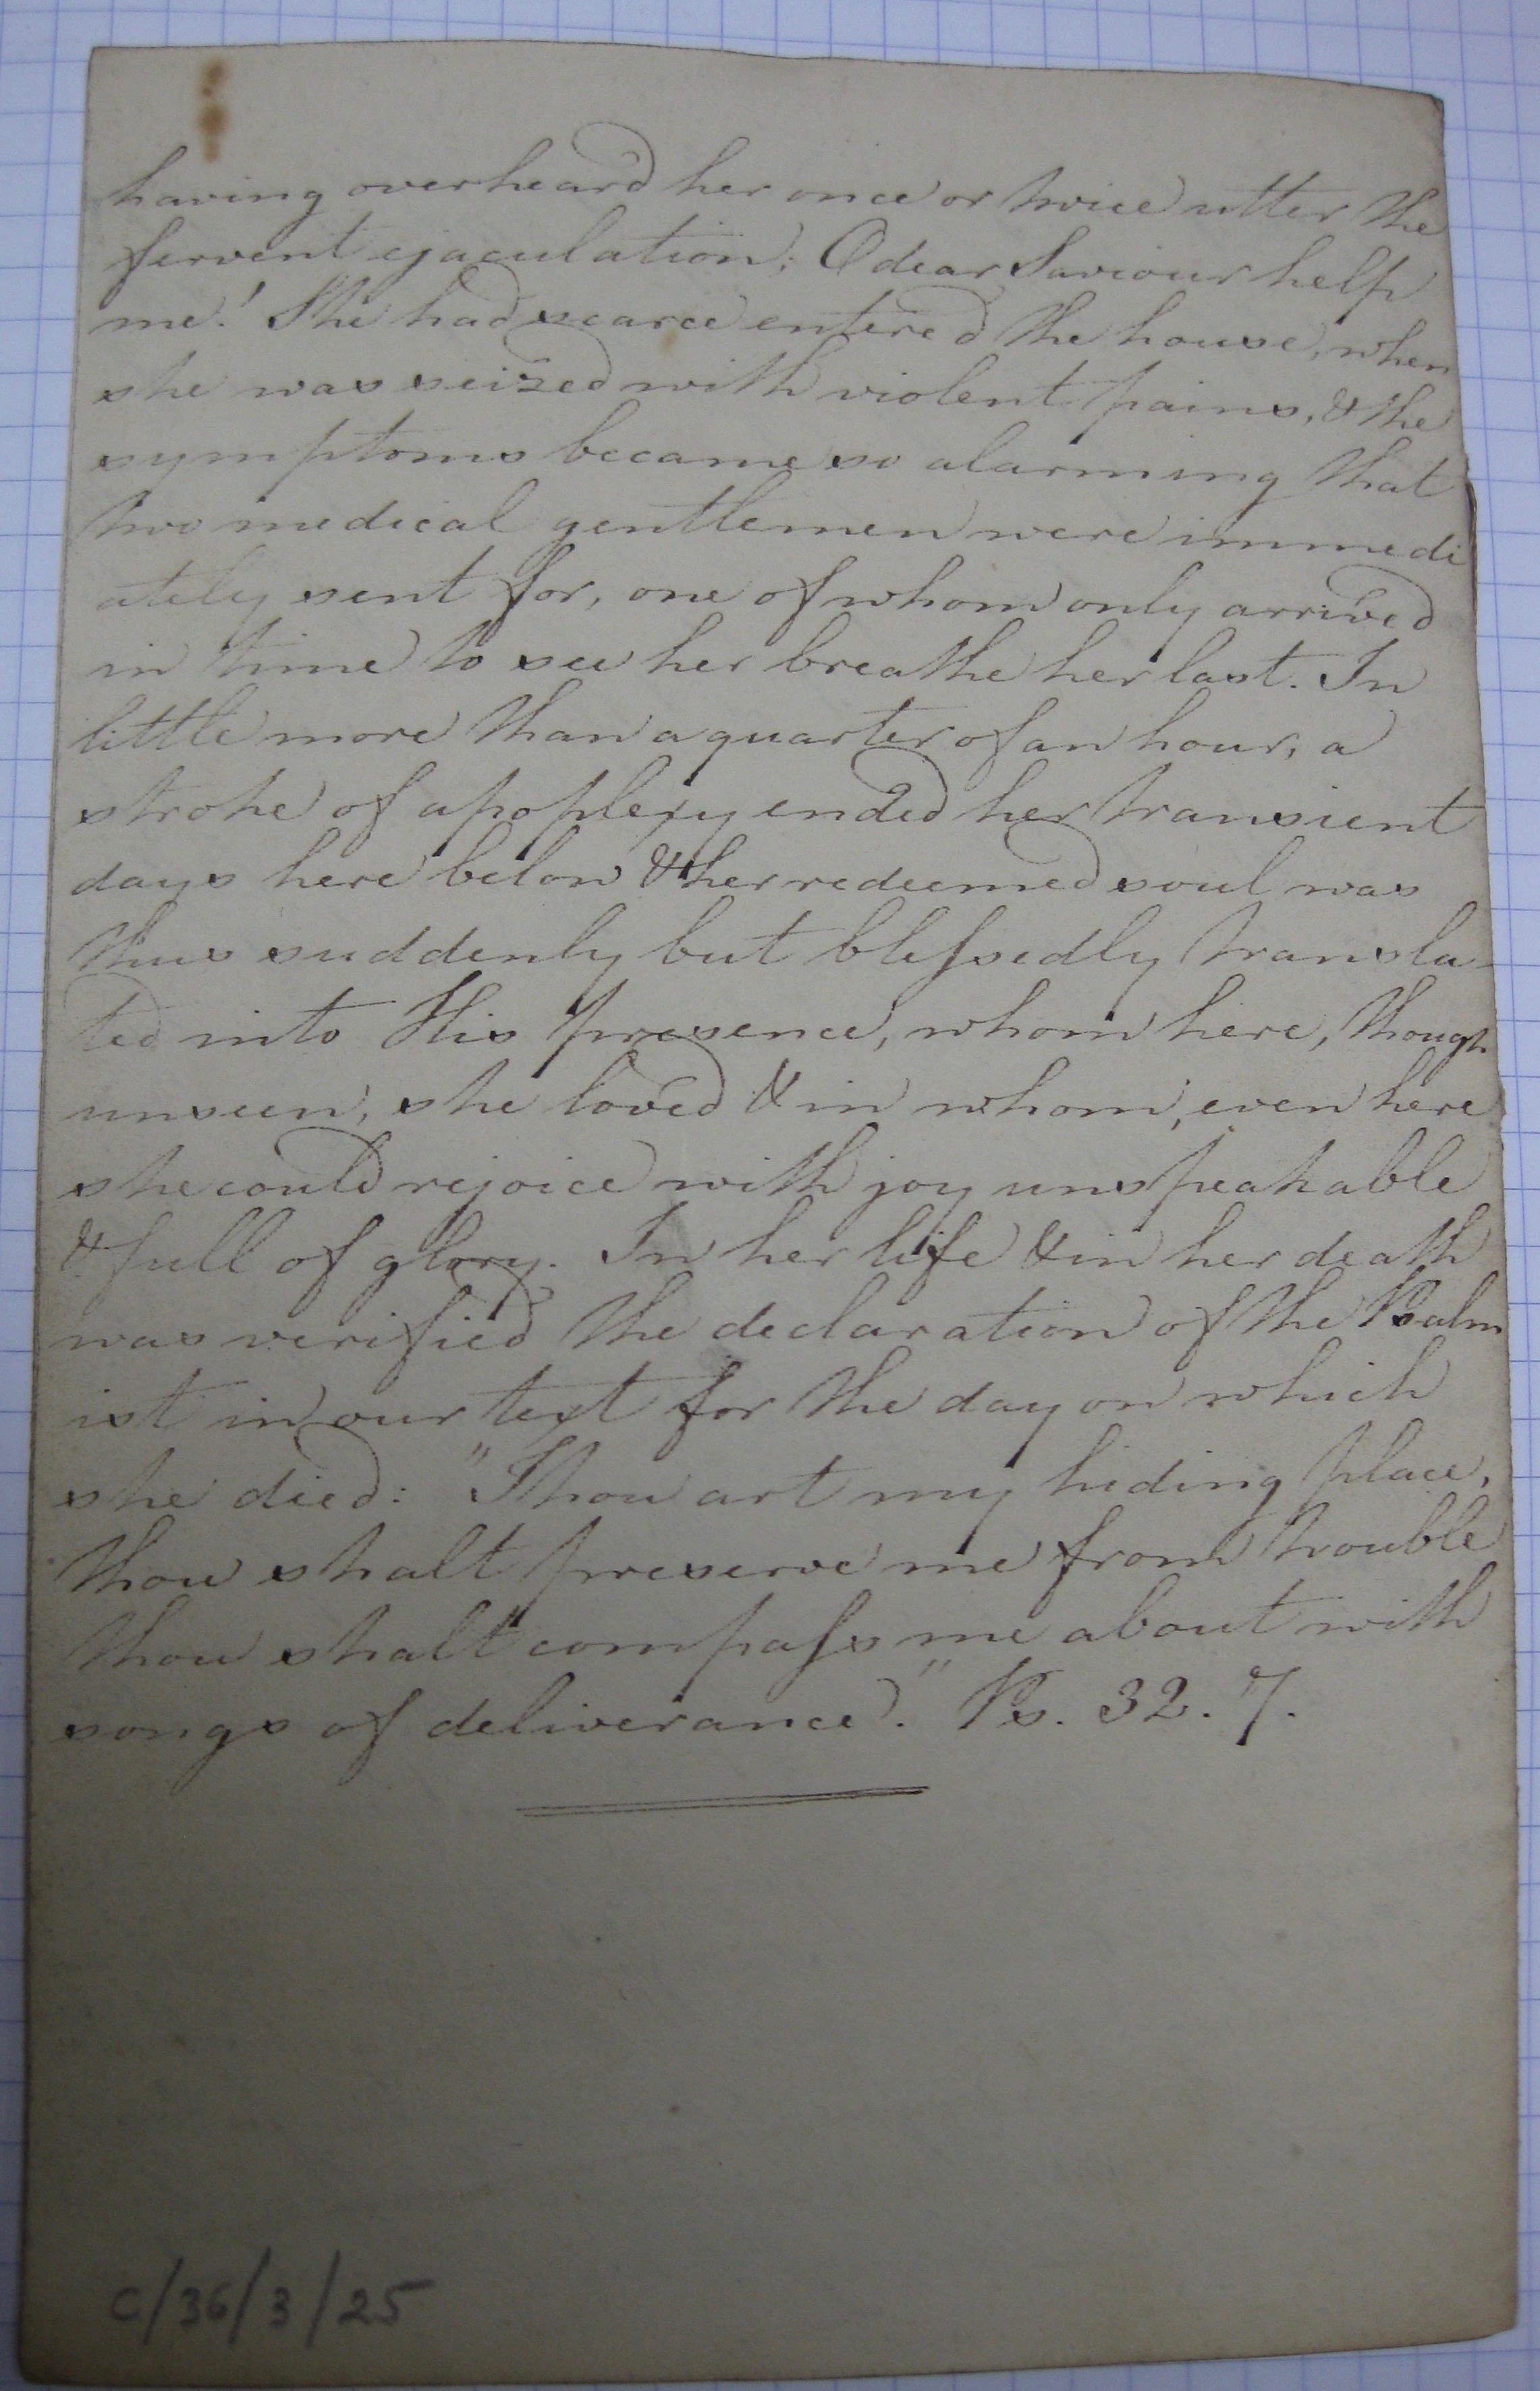 having overheard her once or twice utter the
fervent ejaculation; O dear Saviour help
me! She had scarce entered the house, when
she was seized with violent pains, & the
symptoms became so alarming that
two medical gentlemen were immedi
ately sent for, one of whom only arrived
in time to see her breathe her last. In
little more than a quarter of an hour, a
stroke of apoplexy ended her transient
days here below & her redeemed soul was
thus suddenly but blessedly transla-
ted into His presence, whom here, though
unseen, she loved & in whom, even here
she could rejoice with joy unspeakable
& full of glory. In her life & in her death
was verified the declaration of the Psalm
ist in our text for the day on which
she died: "Thou art my hiding place,
thou shalt preserve me from trouble
thou shalt compass me about with
songs of deliverance." Ps. 32. 7.
C/36/3/25